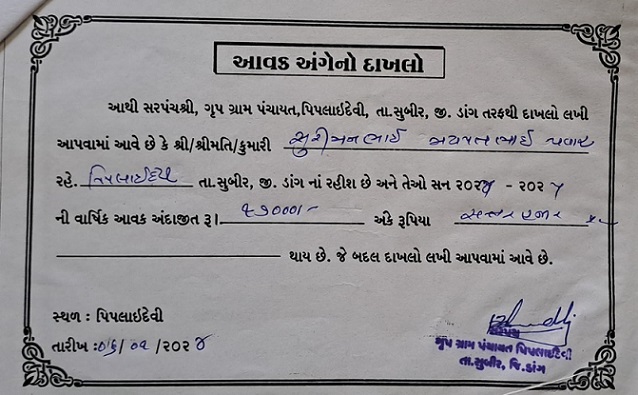 આવક અંગેનો દાખલો
આથી સરપંચશ્રી, ગૃપ ગ્રામ પંચાયત,પિપલાઇદેવી, તા.સુબીર, જી. ડાંગ તરફથી દાખલો લખી
આપવામાં આવે છે કે શ્રી/શ્રીમતિ/કુમારી
રહે. પિપલાઈદેવી તા.સુબીર, જી. ડાંગ નાં રહીશ છે અને તેઓ સન ૨૦૨ - ૨૦૨
ની વાર્ષિક આવક અંદાજીત રૂ।. અંકે રૂપિયા હજાર
થાય છે. જે બદલ દાખલો લખી આપવામાં આવે છે.
સ્થળ : પિપલાઇદેવી
તારીખ : /૦૧ /૨૦૨૪
સરપંચ
ગૃપ ગ્રામ પંચાયત પિપલાઈદેવી
તા.સુબીર, જિ.ડાંગ